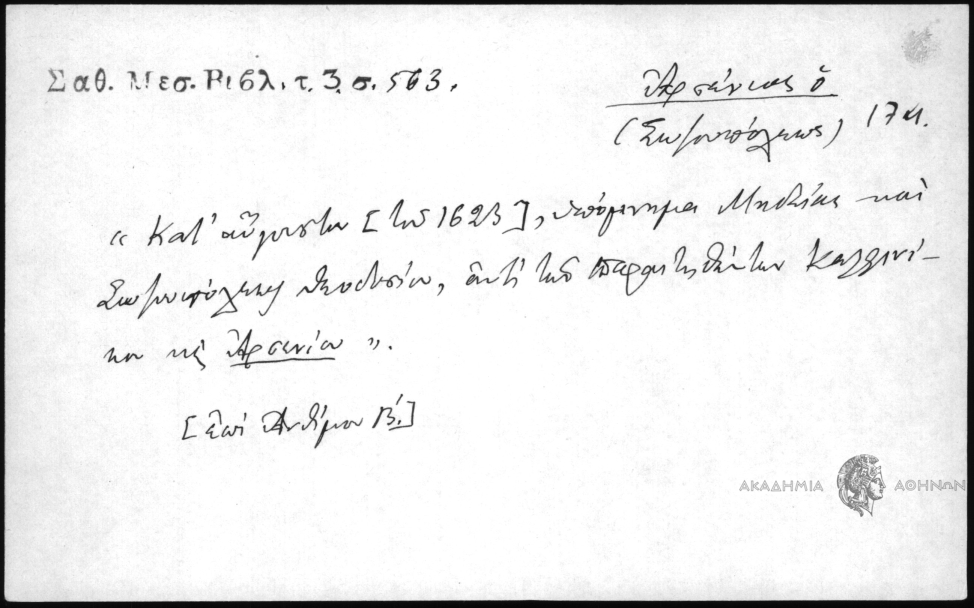 Σαθ. Μεσ. Βιβλ. τ. 3. σ. 563.
Ἀρσένιος ὁ
(Σωζουπόλεως) 17 αι.
“ Κατ' αὔγουστον [τοῦ 1623], ὑπόμνημα Μηδείας καὶ
Σωζουπόλεως Θεοδοσίου, ἀντὶ τοῦ παραιτηθέντων Καλλινί-
κου κὲ Ἀρσενίου ”.
[ἐπὶ Ἀνθίμου Β΄.]
ΑΚΑΔΗΜΙΑ ΑΘΗΝΩΝ